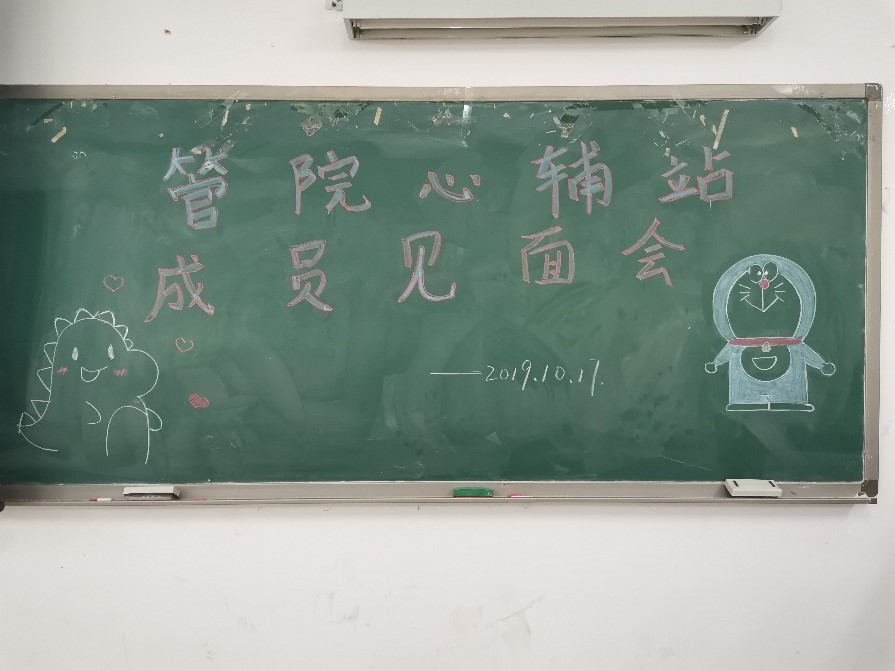 管院心辅站
成员见面会
——2019.10.17.